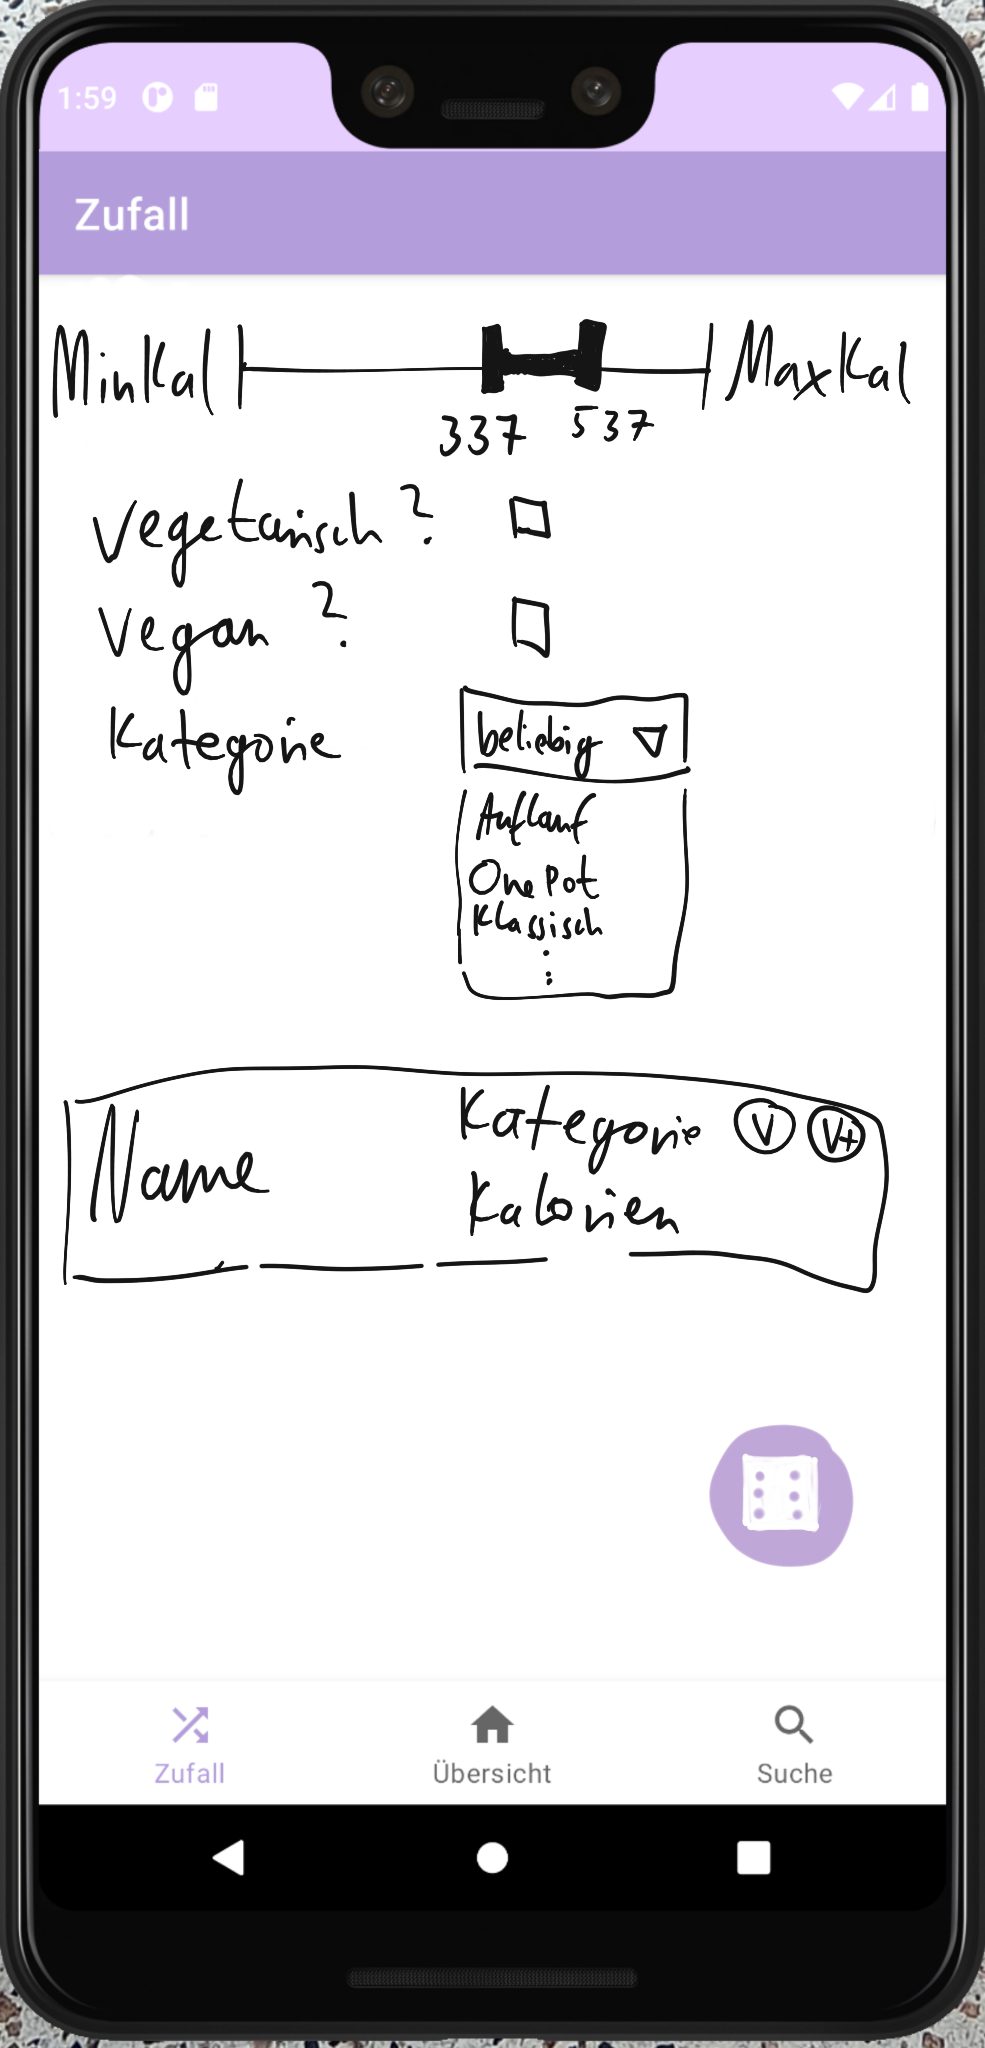 1:59
Zufall
MinKal MaxKal
337 537
Vegetarisch?
Vegan?
Kategorie beliebig
Auflauf
One Pot
Klassisch
Name Kategorie V V+
Kalorien
Zufall Übersicht Suche